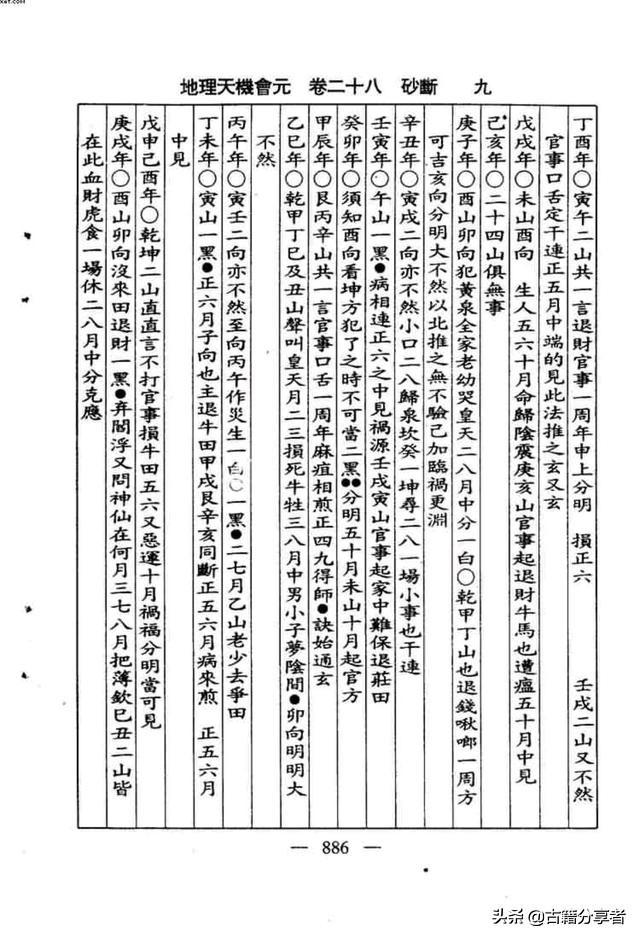 xet.com
地理天機會元　卷二十八　砂斷　九
丁酉年〇寅午二山共一言退財官事一周年申上分明　損正六　壬戌二山又不然
官事口舌定干連正五月中端的見此法推之玄又玄
戊戌年〇未山酉向　生人五六十月命歸陰震庚亥山官事起退財牛馬也遭瘟五十月中見
己亥年〇二十四山俱無事
庚子年〇酉山卯向犯黃泉全家老幼哭皇天二八月中分一白〇乾甲丁山也退錢啾唧一周方
可吉亥向分明大不然以北推之無不驗己加臨禍更淵
辛丑年〇寅戌二向亦不然小口二八歸泉坎癸一坤尋二八一場小事也干連
壬寅年〇午山一黑●病相連正六之中見禍源壬戌寅山官事起家中難保退莊田
癸卯年〇須知酉向看坤方犯了之時不可當二黑●●分明五十月未山十月起官方
甲辰年〇艮丙辛山共一言官事口舌一周年麻疽相煎正四九得師●訣始通玄
乙巳年〇乾甲丁巳及丑山聲叫皇天月二三損死牛牲三八月中男小子夢陰間●卯向明明大
不然
丙午年〇寅壬二向亦不然至向丙午作災生一白〇一黑●二七月乙山老少去爭田
丁未年〇寅山一黑●正六月子向也主退牛田甲戌艮辛亥同斷正五六月病來煎　正五六月
中見
戊申己酉年〇乾坤二山直直言不打官事損牛田五六又惡運十月禍福分明當可見
庚戌年〇酉山卯向沒來田退財一黑●弃閻浮又問神仙在何月三七八月把薄欽巳丑二山皆
在此血財虎食一場休二八月中分克應
— 886 —
头条 @古籍分享者